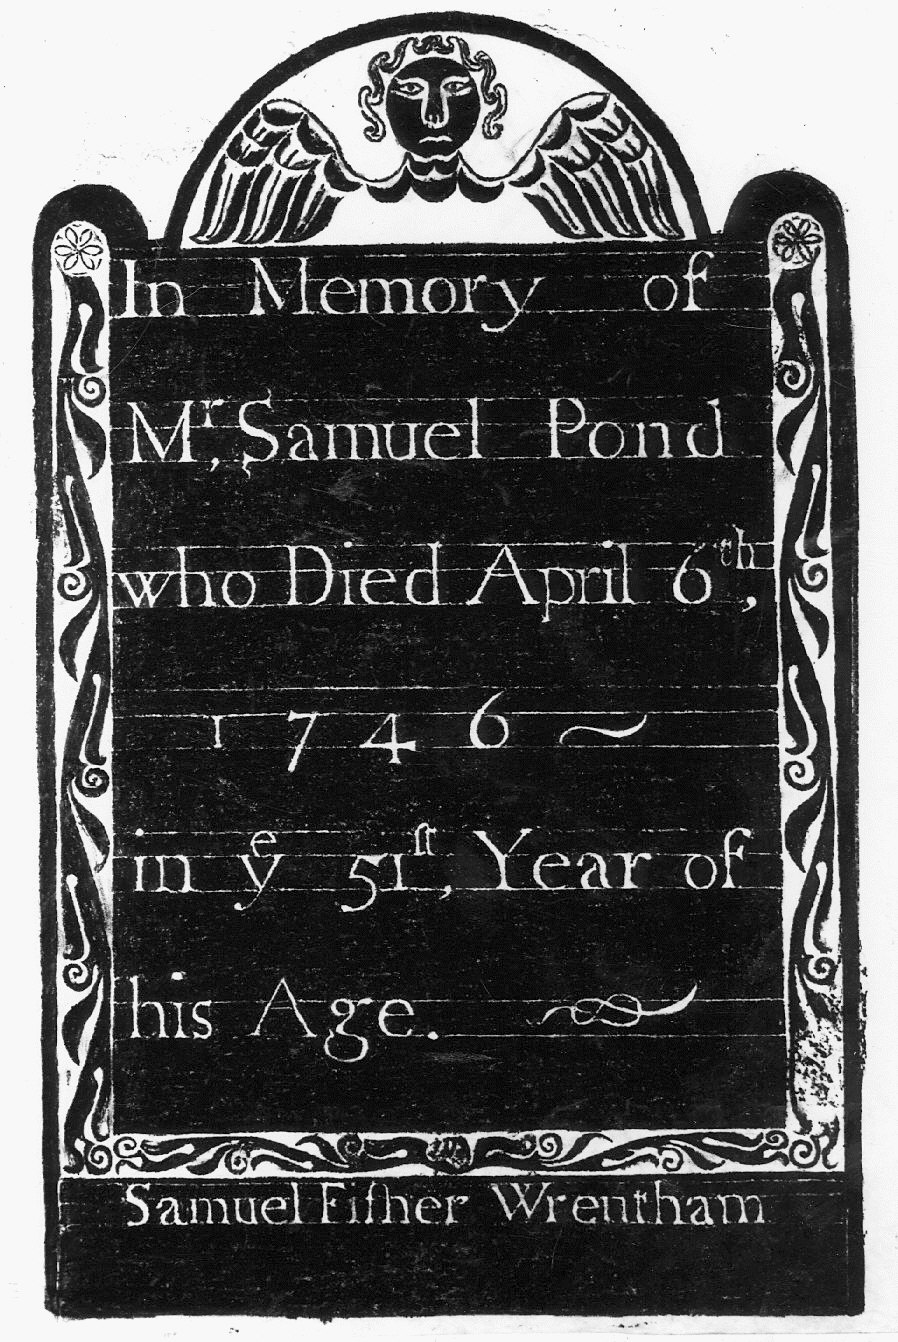 In Memory of
Mr, Samuel Pond
who Died April 6th,
1746 ~
in ye 51st, Year of
his Age.
Samuel Fiſher Wrentham